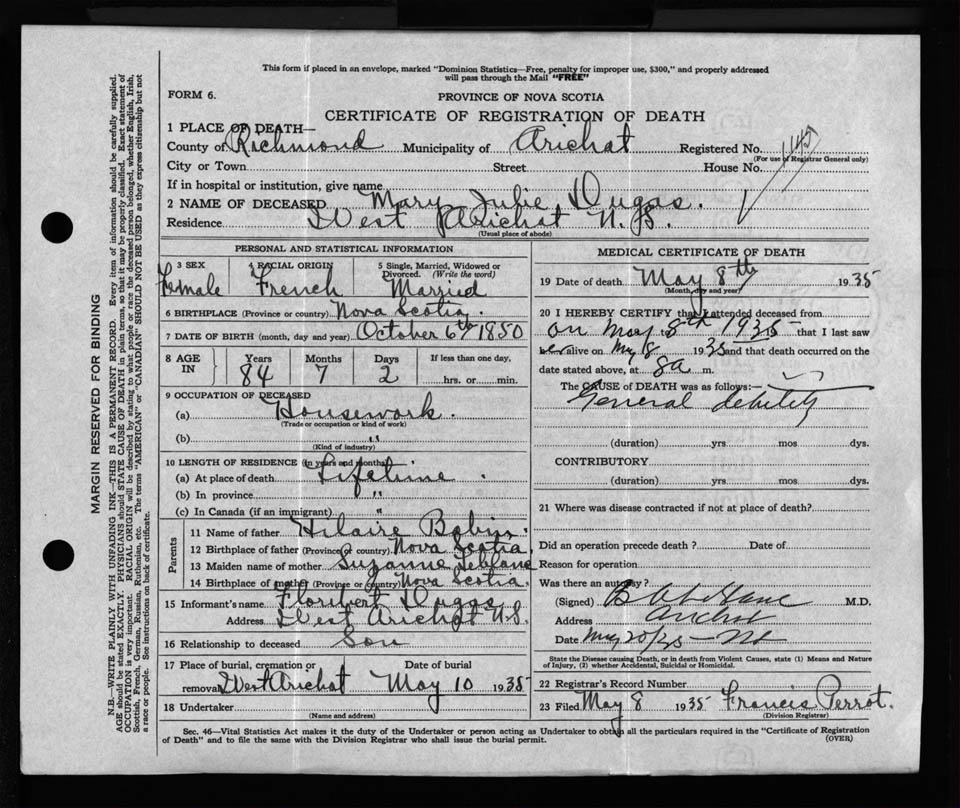 This form if placed in an envelope, marked "Dominion Statistics—Free, penalty for improper use, $300," and properly addressed
will pass through the Mail "FREE"
FORM 6.
PROVINCE OF NOVA SCOTIA
CERTIFICATE OF REGISTRATION OF DEATH
1 PLACE OF DEATH—
County of Richmond Municipality of Arichat Registered No.
(For use of Registrar General only)
City or Town Street House No.
If in hospital or institution, give name
2 NAME OF DECEASED Mary Julie Dugas.
Residence West Arichat N.S.
(Usual place of abode)
PERSONAL AND STATISTICAL INFORMATION
3 SEX 4 RACIAL ORIGIN 5 Single, Married, Widowed or
Divorced. (Write the word)
Female French Married
6 BIRTHPLACE (Province or country) Nova Scotia
7 DATE OF BIRTH (month, day and year) October 6th 1850
8 AGE Years Months Days If less than one day,
IN 84 7 2 hrs. or min.
9 OCCUPATION OF DECEASED
(a) Housework.
(Trade or occupation or kind of work)
(b) "
(Kind of industry)
10 LENGTH OF RESIDENCE (in years and months)
(a) At place of death Lifetime
(b) In province "
(c) In Canada (if an immigrant) "
Parents
11 Name of father Hilaire Babin
12 Birthplace of father (Province or country) Nova Scotia
13 Maiden name of mother Suzanne Leblanc
14 Birthplace of mother (Province or country) Nova Scotia.
15 Informant's name Floribert Dugas
Address West Arichat N.S.
16 Relationship to deceased Son
17 Place of burial, cremation or Date of burial
removal West Arichat May 10 1935
18 Undertaker
(Name and address)
MEDICAL CERTIFICATE OF DEATH
19 Date of death May 8th 1935
(Month, day and year)
20 I HEREBY CERTIFY that I attended deceased from
on May 8th 1935 that I last saw
her alive on May 8 1935 and that death occurred on the
date stated above, at 8a m.
The CAUSE of DEATH was as follows:
General debility
(duration) yrs mos dys.
CONTRIBUTORY
(duration) yrs mos dys.
21 Where was disease contracted if not at place of death?
Did an operation precede death? Date of
Reason for operation
Was there an autopsy?
(Signed) M.D.
Address Arichat
Date May 20/35 — NS
State the Disease causing Death, or in death from Violent Causes, state (1) Means and Nature
of Injury, (2) whether Accidental, Suicidal or Homicidal.
22 Registrar's Record Number
23 Filed May 8 1935 Francis Perrot.
(Division Registrar)
Sec. 46—Vital Statistics Act makes it the duty of the Undertaker or person acting as Undertaker to obtain all the particulars required in the "Certificate of Registration
of Death" and to file the same with the Division Registrar who shall issue the burial permit.
(OVER)
MARGIN RESERVED FOR BINDING
N.B.—WRITE PLAINLY WITH UNFADING INK—THIS IS A PERMANENT RECORD. Every item of information should be carefully supplied.
AGE should be stated EXACTLY. PHYSICIANS should STATE CAUSE OF DEATH in plain terms, so that it may be properly classified. Exact statement of
OCCUPATION is very important. RACIAL ORIGIN will be described by stating to what people or race the deceased person belonged, whether English, Irish,
Scottish, French, German, Russian, Ruthenian, etc. The terms "AMERICAN" or "CANADIAN" SHOULD NOT BE USED as they express citizenship but not
a race or people. See instructions on back of certificate.